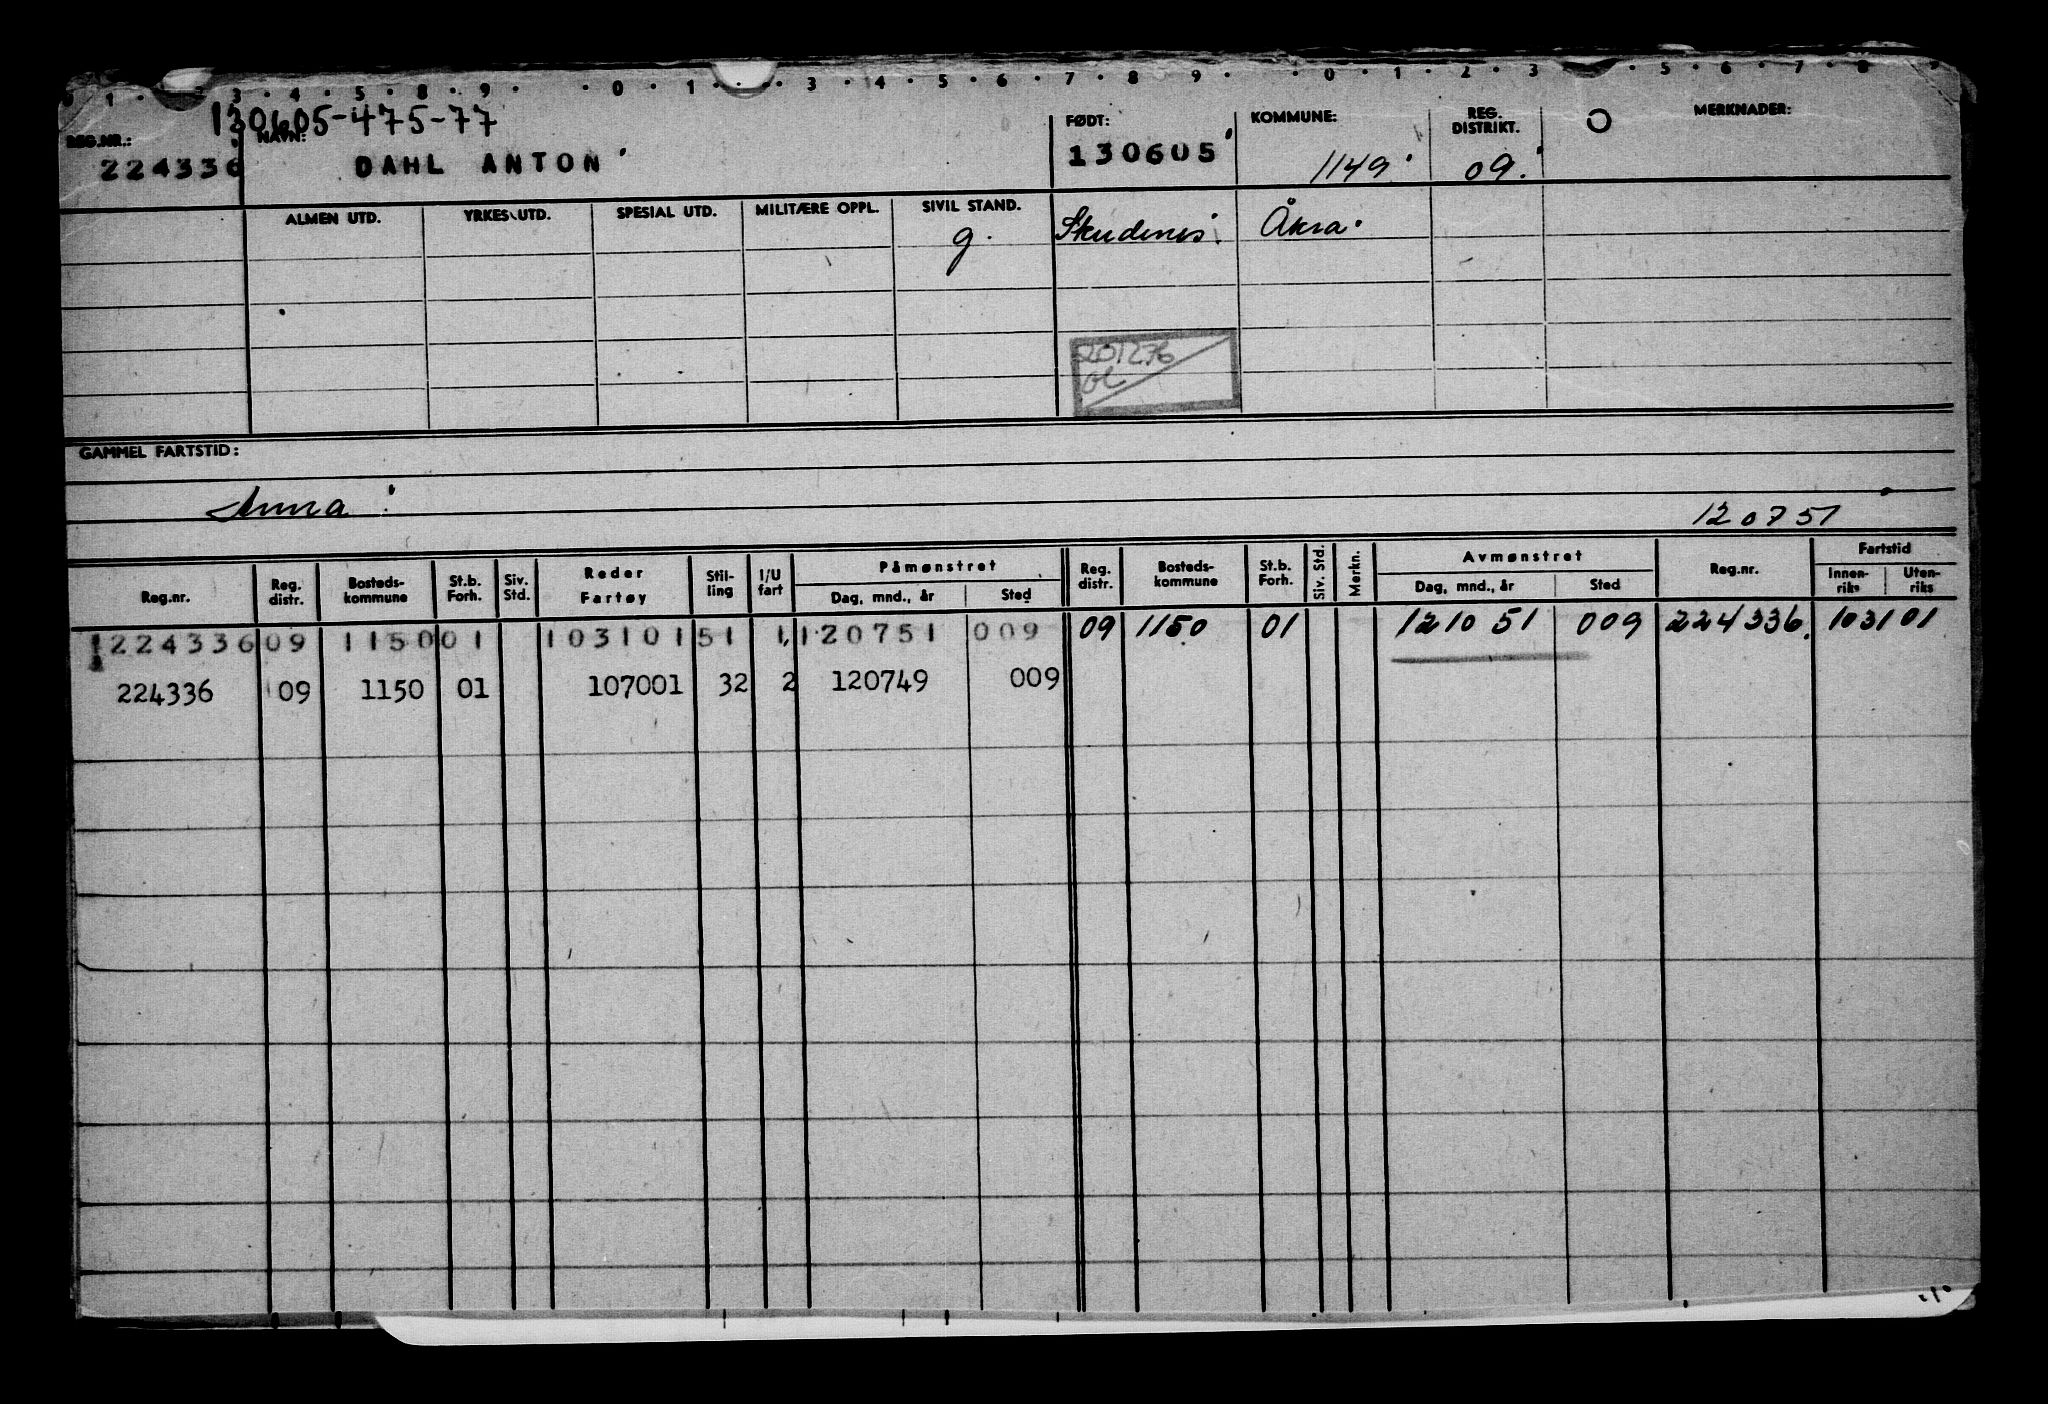 0 1 · 2 · 3 · 4 · 5 · 8 · 9 · · 0 · 1 · · · 3 · 4 · 5 · 6 · 7 · 8 · 9 · · 0 · 1 · 2 · 3 · 5 · 6 · 7 · 8
130605-475-77
REG.NR.: NAVN: FØDT: KOMMUNE: REG. DISTRIKT. O MERKNADER:
224336 DAHL ANTON 130605 1149 09.
ALMEN UTD. YRKES UTD. SPESIAL UTD. MILITÆRE OPPL. SIVIL STAND.
g. Skudenes. Åkra.
201276
GAMMEL FARTSTID:
Anna
120751
Reg.nr. Reg. distr. Bosteds-kommune St.b. Forh. Siv. Std. Reder Fartøy Stil-ling I/U fart Påmønstret Dag, mnd., år Sted Reg. distr. Bosteds-kommune St.b. Forh. Siv. Std. Merkn. Avmønstret Dag, mnd., år Sted Reg.nr. Fartstid Innen-riks Uten-riks
224336 09 1150 01 103101 51 1 120751 009 09 1150 01 121051 009 224336 103101
224336 09 1150 01 107001 32 2 120749 009